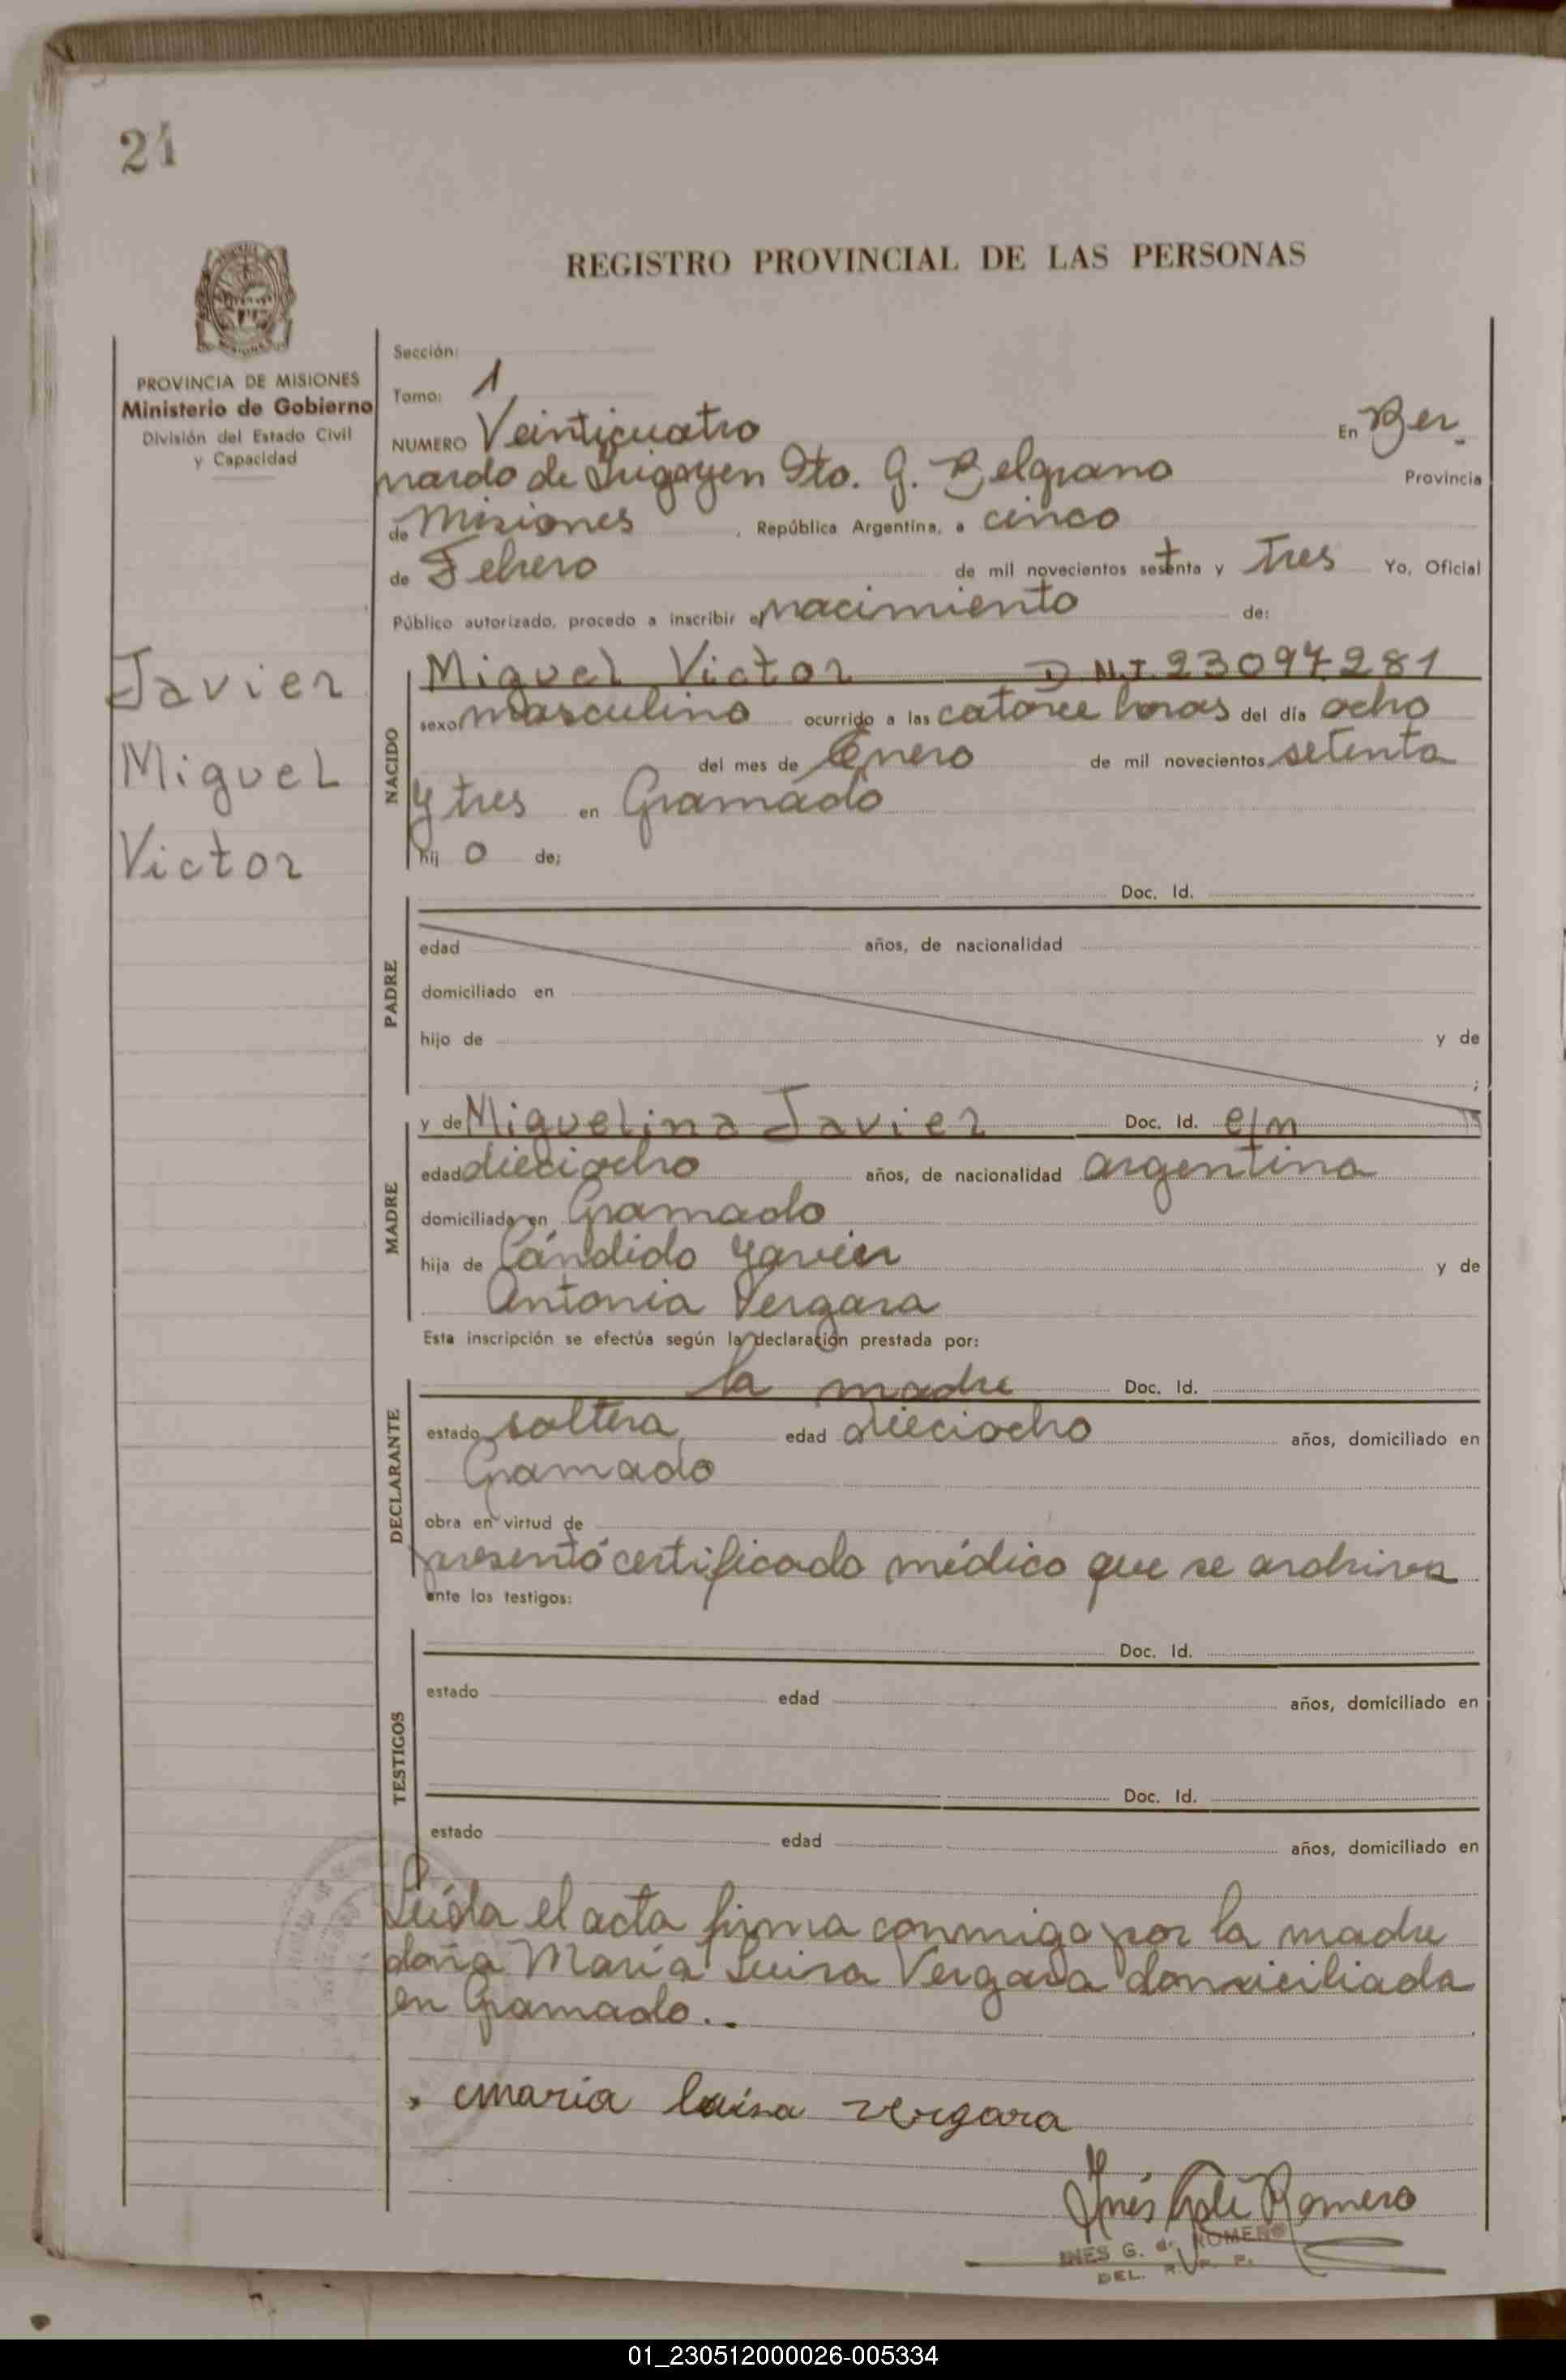 24
REGISTRO PROVINCIAL DE LAS PERSONAS
PROVINCIA DE MISIONES
Ministerio de Gobierno
División del Estado Civil
y Capacidad
Javier
Miguel
Victor
Sección:
Tomo: 1
NUMERO Veinticuatro En Ber_
nardo de Irigoyen Dto. G. Belgrano Provincia
de Misiones , República Argentina, a cinco
de Febrero de mil novecientos sesenta y tres Yo, Oficial
Público autorizado, procedo a inscribir el nacimiento de:
NACIDO
Miguel Victor D N.I. 23097281
sexo masculino ocurrido a las catorce horas del día ocho
del mes de Enero de mil novecientos setenta
y tres en Gramado
hij o de;
PADRE
Doc. Id.
edad años, de nacionalidad
domiciliado en
hijo de y de
;
MADRE
y de Miguelina Javier Doc. Id. e/n
edad dieciocho años, de nacionalidad argentina
domiciliada en Gramado
hija de Cándido Javier y de
Antonia Vergara
Esta inscripción se efectúa según la declaración prestada por:
DECLARANTE
la madre Doc. Id.
estado soltera, edad dieciocho años, domiciliado en
Gramado
obra en virtud de
presentó certificado médico que se archiva
ante los testigos:
TESTIGOS
Doc. Id.
estado edad años, domiciliado en
Doc. Id.
estado edad años, domiciliado en
Leída el acta firma conmigo por la madre
doña María Luisa Vergara domiciliada
en Gramado..
maria luisa vergara
Inés Romero
INES G. de ROMERO
DEL. R. P. P.
01_230512000026-005334